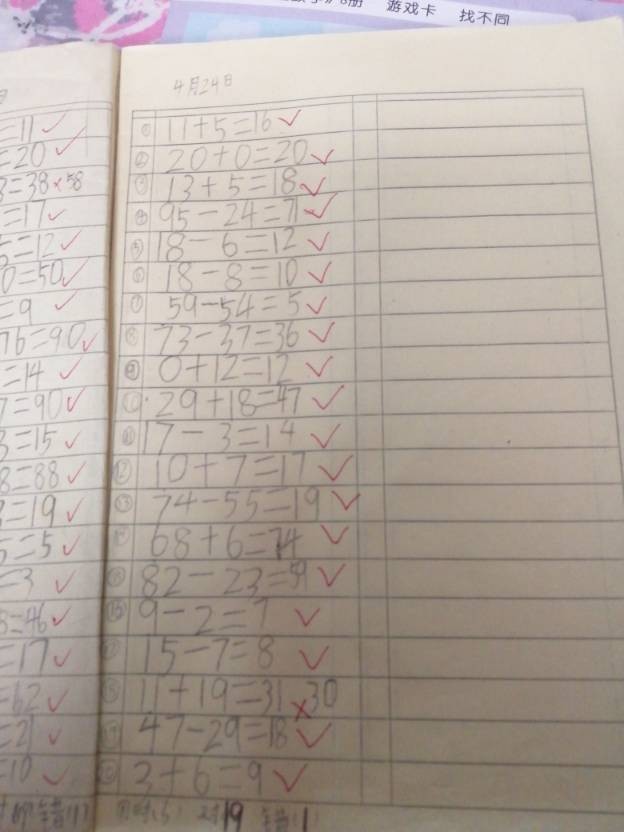 8册 游戏卡 找不同
4月24日
=11
① 11+5=16
=20
② 20+0=20
3=38 58
③ 13+5=18
=17
④ 95-24=71
5=12
⑤ 18-6=12
0=50
⑥ 18-8=10
=9
⑦ 59-54=5
76=90
⑧ 73-37=36
=14
⑨ 0+12=12
7=90
⑩ 29+18=47
3=15
⑪ 17-3=14
8=88
⑫ 10+7=17
=19
⑬ 74-55=19
5=5
⑭ 68+6=74
=3
⑮ 82-23=59
8=46
⑯ 9-2=7
=17
⑰ 15-7=8
=62
⑱ 11+19=31 30
=21
⑲ 47-29=18
=10
⑳ 3+6=9
对19 错1